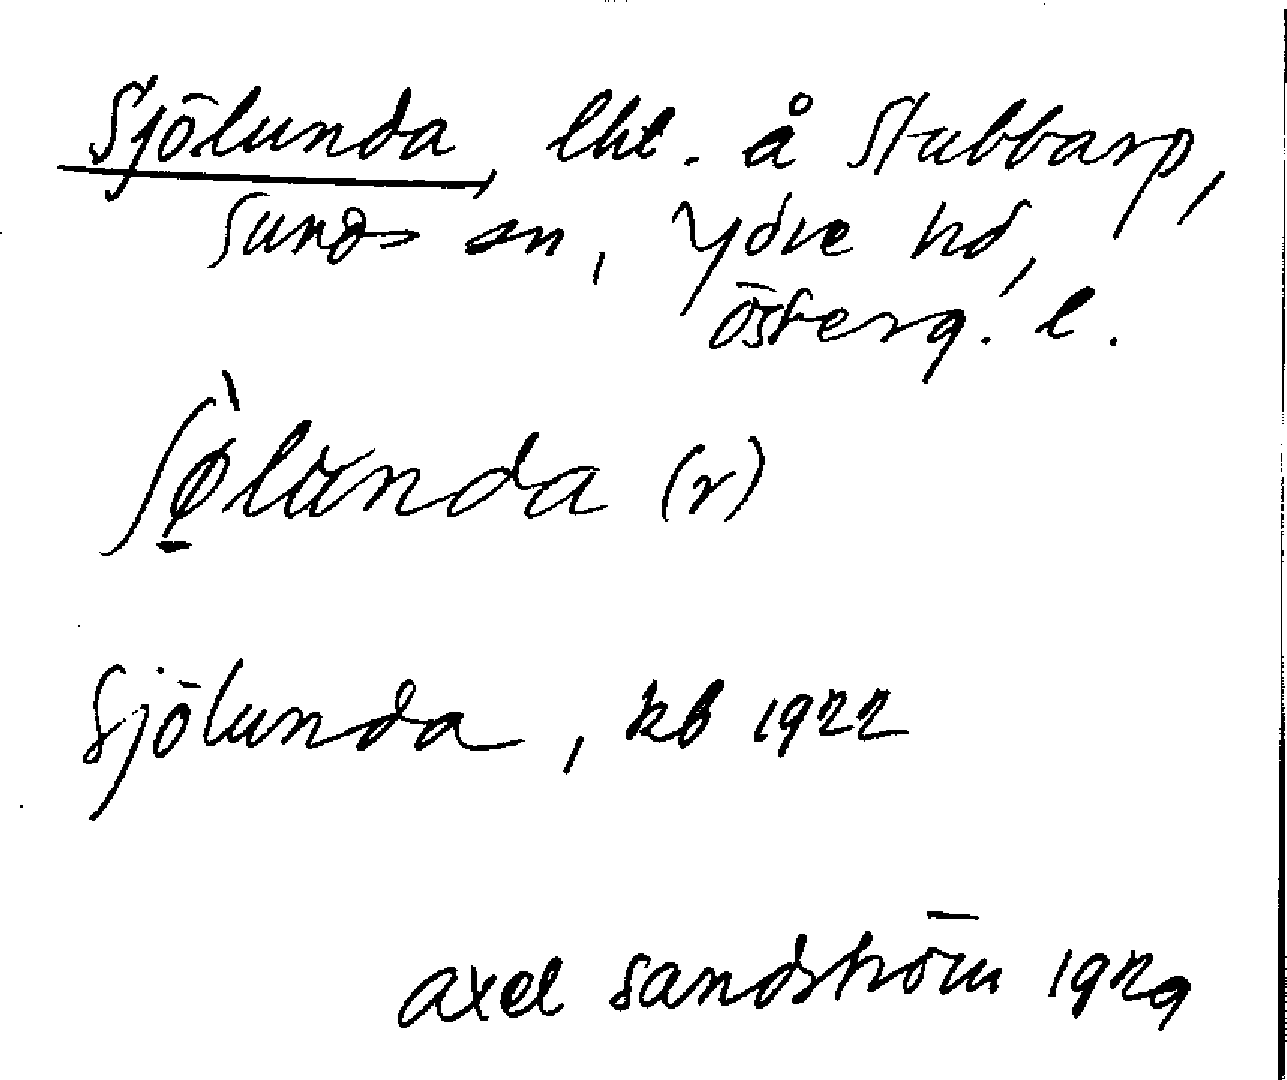 Sjölunda, lht. å Stubbarp,
Sunds sn, Ydre hd,
Österg. l.
ʃø̀lunda (r)
Sjölunda, kb 1922
Axel Sandström 1929